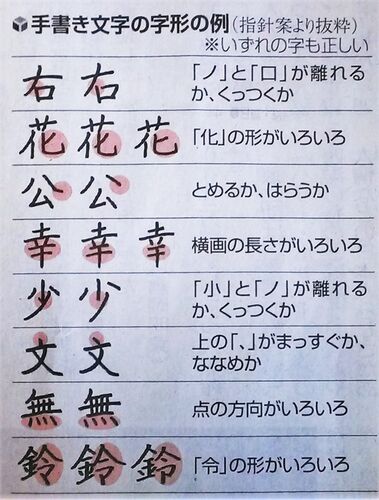 手書き文字の字形の例(指針案より抜粋)
※いずれの字も正しい
右 右 「ノ」と「口」が離れる
か、くっつくか
花 花 花 「化」の形がいろいろ
公 公 とめるか、はらうか
幸 幸 幸 横画の長さがいろいろ
少 少 「小」と「ノ」が離れる
か、くっつくか
文 文 上の「、」がまっすぐか、
ななめか
無 無 点の方向がいろいろ
鈴 鈴 鈴 「令」の形がいろいろ